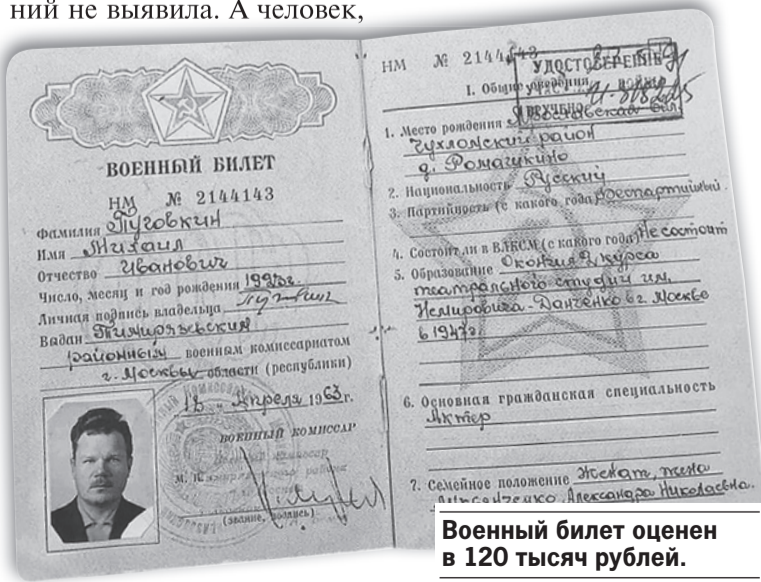 ний не выявила. А человек,
ВОЕННЫЙ БИЛЕТ
НМ № 2144143
Фамилия Пуговкин
Имя Михаил
Отчество Иванович
Число, месяц и год рождения 1923г.
Личная подпись владельца
Выдан Тимирязевским
районным военным комиссариатом
г. Москвы области (республики)
18 Апреля 1963г.
ВОЕННЫЙ КОМИССАР
М. П.
(звание, подпись)
НМ № 2144143
УДОСТОВЕРЕНИЕ
I. Общие сведения
ВРУЧЕНО
1. Место рождения Ярославская обл.
Чухломский район
д. Ромачукино
2. Национальность Русский
3. Партийность (с какого года) Беспартийный.
4. Состоит ли в ВЛКСМ (с какого года) Не состоит
5. Образование Окончил 2 курса
театральной студии им.
Немировича-Данченко в г. Москве
в 1947г.
6. Основная гражданская специальность
Актер
7. Семейное положение Женат, жена
Александра Николаевна.
Военный билет оценен
в 120 тысяч рублей.